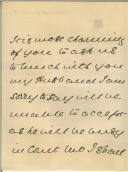 It is most charming
of you to ask us
to lunch with you
my Husband I am
sorry to say will be
unable to accept
as he will be busy
in Court but I shall